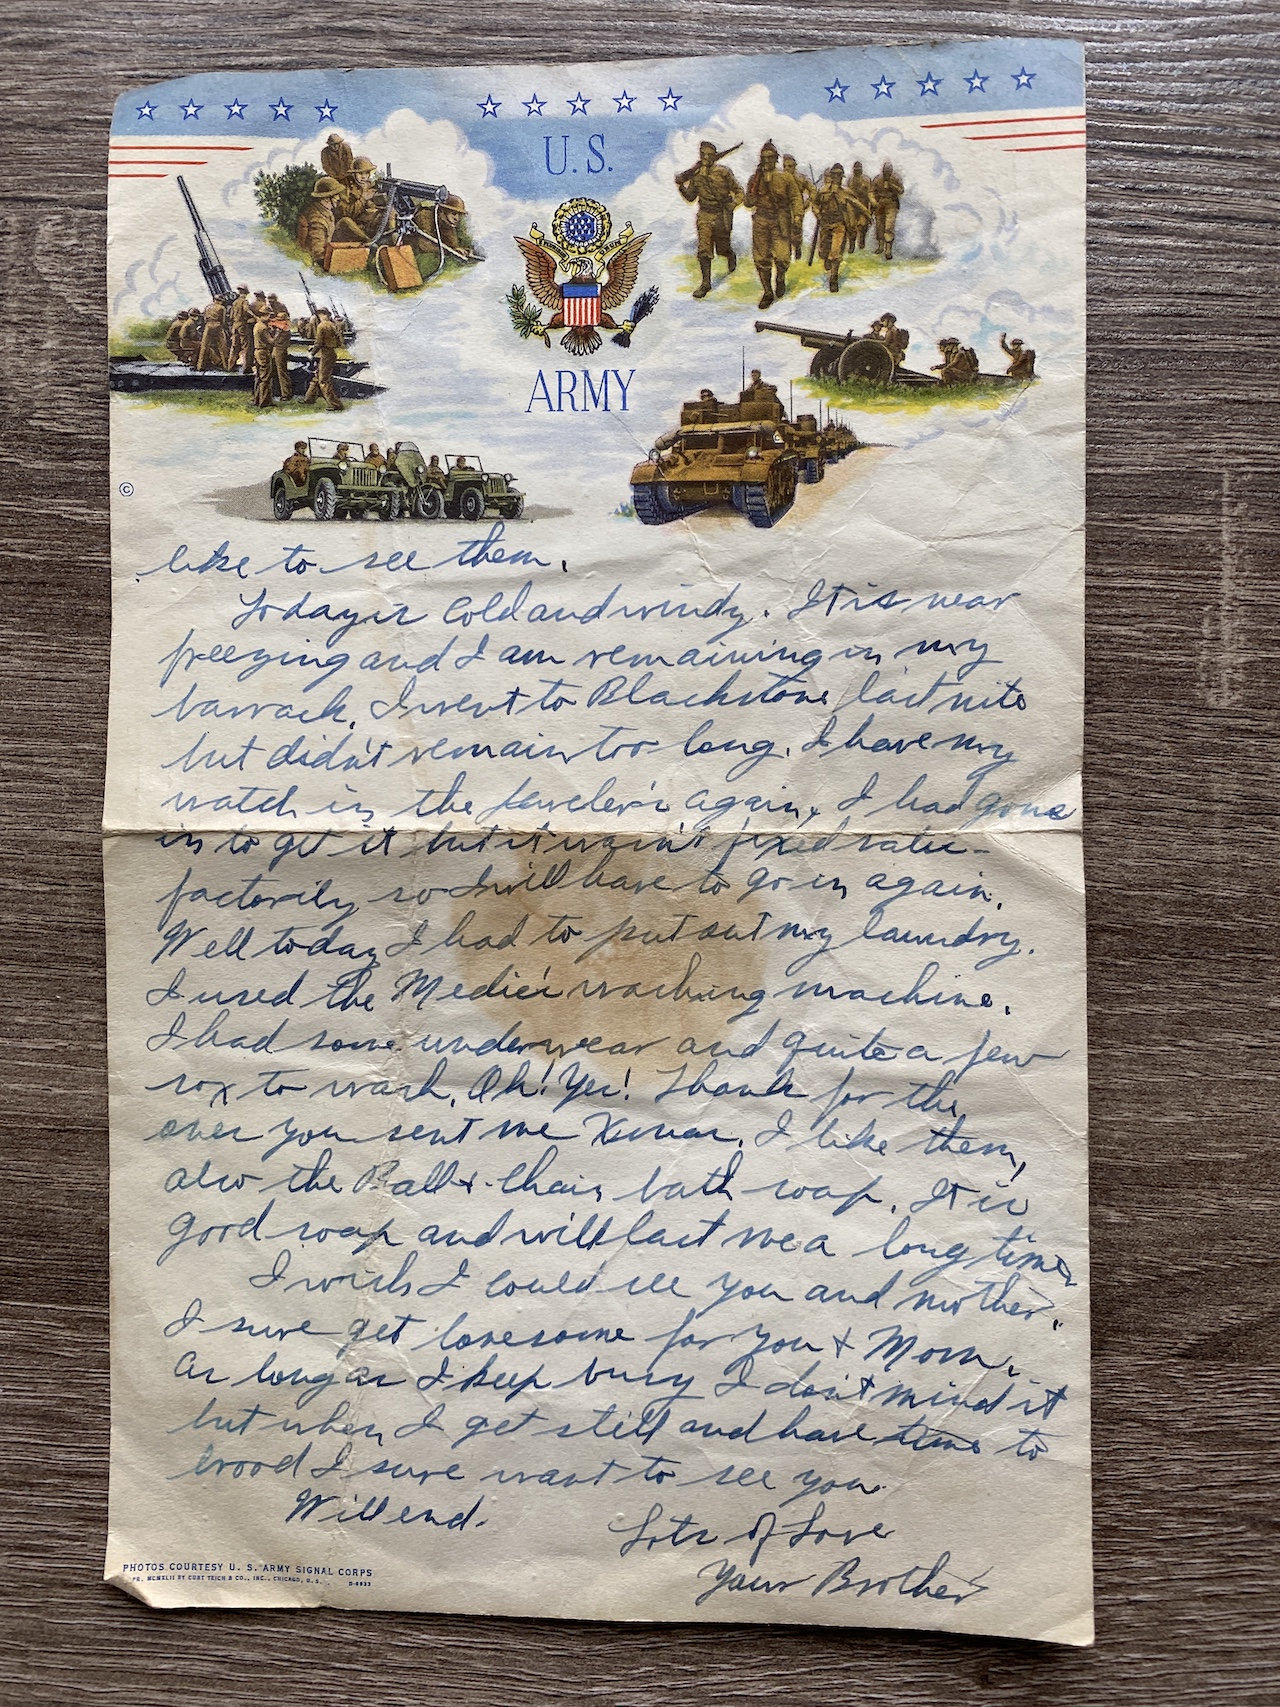 U.S.
ARMY
©
like to see them.
Today is cold and windy. It is near
freezing and I am remaining in my
barrack. I went to Blackstone last nite
but didn't remain too long. I have my
watch in the jeweler's again. I had gone
in to get it but it wasn't fixed satis-
factorily so I will have to go in again.
Well today I had to put out my laundry.
I used the Medic's washing machine.
I had some underwear and quite a few
sox to wash. Oh! Yes! Thank for the
ones you sent me Xmas. I like them,
also the Ball + Chain bath soap. It is
good soap and will last me a long time.
I wish I could see you and mother.
I sure get lonesome for you + Mom.
As long as I keep busy I don't mind it
but when I get still and have time to
brood I sure want to see you.
Will end.
Lots of Love
Your Brother
PHOTOS COURTESY U. S. ARMY SIGNAL CORPS
PR. MCMXLII BY CURT TEICH & CO., INC., CHICAGO, U. S.
D-4933